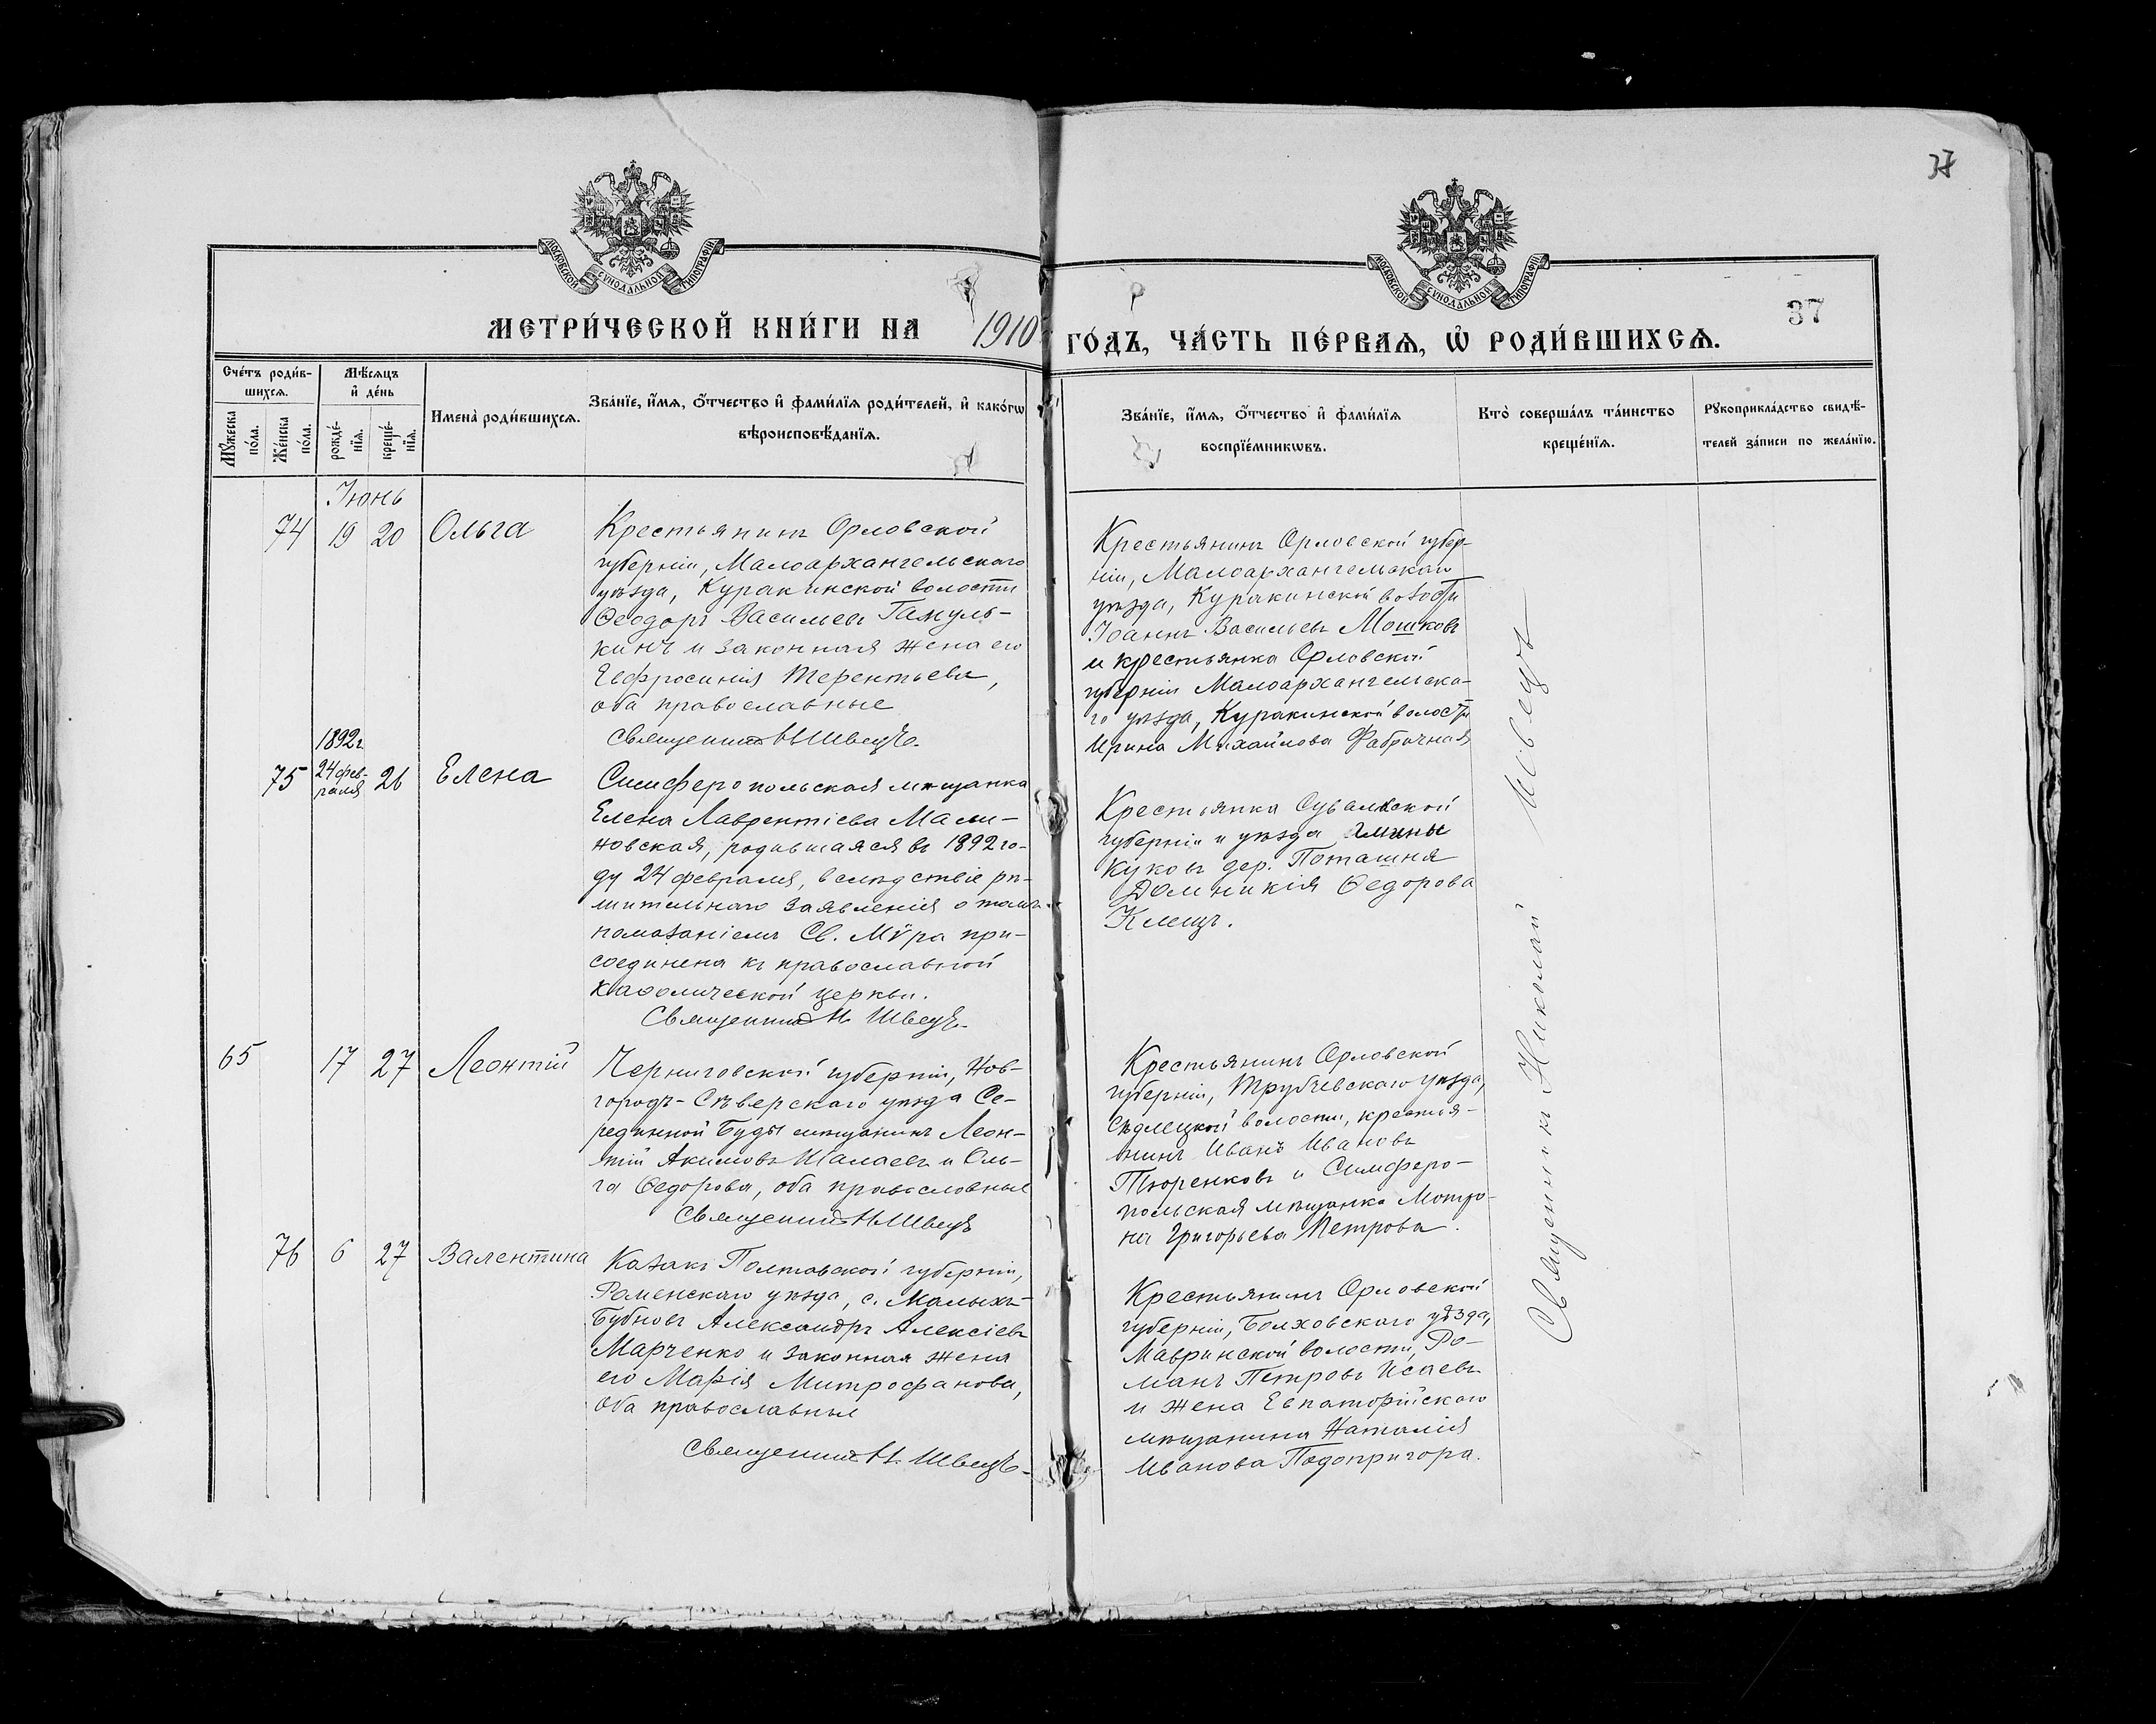 37
МОСКОВСКОЙ СѴНОДАЛЬНОЙ ТИПОГРАФІИ
МОСКОВСКОЙ СѴНОДАЛЬНОЙ ТИПОГРАФІИ
37
МЕТРИ́ЧЕСКОЙ КНИ́ГИ НА 1910 ГО́ДЪ, ЧА́СТЬ ПЕ́РВАѦ, Ѡ҆ РОДИ́ВШИХСѦ.
Сче́тъ роди́в-
шихсѧ.
Мꙋ́жеска
по́ла.
Же́нска
по́ла.
Мѣ́сѧцъ
и҆ де́нь
рожде́-
нїѧ.
креще́-
нїѧ.
Имена̀ роди́вшихсѧ.
Зва́нїе, и҆́мѧ, ѻ҆́тчество и҆ фами́лїѧ роди́телей, и҆ како́гѡ
вѣроисповѣ́данїѧ.
Зва́нїе, и҆́мѧ, ѻ҆́тчество и҆ фами́лїѧ
воспрїе́мникѡвъ.
Кто̀ соверша́лъ та́инство
креще́нїѧ.
Рꙋкоприкла́дство свидѣ́-
телей за́писи по жела́нїю.
Іюнь
74 19 20 Ольга
Крестьянинъ Орловской
губерніи, Малоархангельскаго
уѣзда, Куракинской волости
Ѳеодоръ Васильевъ Гамуль-
кинъ и законная жена его
Евфросинія Терентьева,
оба православные
Священникъ Н. Швецъ.
Крестьянинъ Орловской губер-
ніи, Малоархангельскаго
уѣзда, Куракинской волости
Іоаннъ Васильевъ Мошковъ
и крестьянка Орловской
губерніи Малоархангельска-
го уѣзда, Куракинской волости
Ирина Михайлова Фабричная
75 1892 г.
24 фев-
раля 26 Елена
Симферопольская мѣщанка
Елена Лаврентіева Мали-
новская, родившаяся въ 1892 го-
ду 24 февраля, вслѣдствіе рѣ-
шительнаго заявленія о томъ
помазаніемъ Св. Мѵра при-
соединена къ православной
каѳолической церкви.
Священникъ Н. Швецъ.
Крестьянка Сувалкской
губерніи и уѣзда гмины
Куковъ дер. Поташня
Домникія Ѳедорова
Клещъ.
65 17 27 Леонтій
Черниговской губерніи, Нов-
городъ-Сѣверскаго уѣзда Се-
рединной Буды мѣщанинъ Леон-
тій Акимовъ Шалаевъ и Оль-
га Ѳедорова, оба православные
Священникъ Н. Швецъ
Крестьянинъ Орловской
губерніи, Трубчевскаго уѣзда,
волости, крестья-
нинъ Иванъ Ивановъ
Тюренковъ и Симферо-
польская мѣщанка Мотро-
на Григорьева Петрова.
76 6 27 Валентина
Казакъ Полтавской губерніи,
Роменскаго уѣзда, с. Малыхъ-
Бубновъ Александръ Алексіевъ
Марченко и законная жена
его Марія Митрофанова,
оба православные
Священникъ Н. Швецъ.
Крестьянинъ Орловской
губерніи, Болховскаго уѣзда,
Мавринской волости, Ро-
манъ Петровъ Исаевъ
и жена Евпаторійскаго
мѣщанина Наталія
Иванова Подопригора.
Священникъ Николай Швецъ